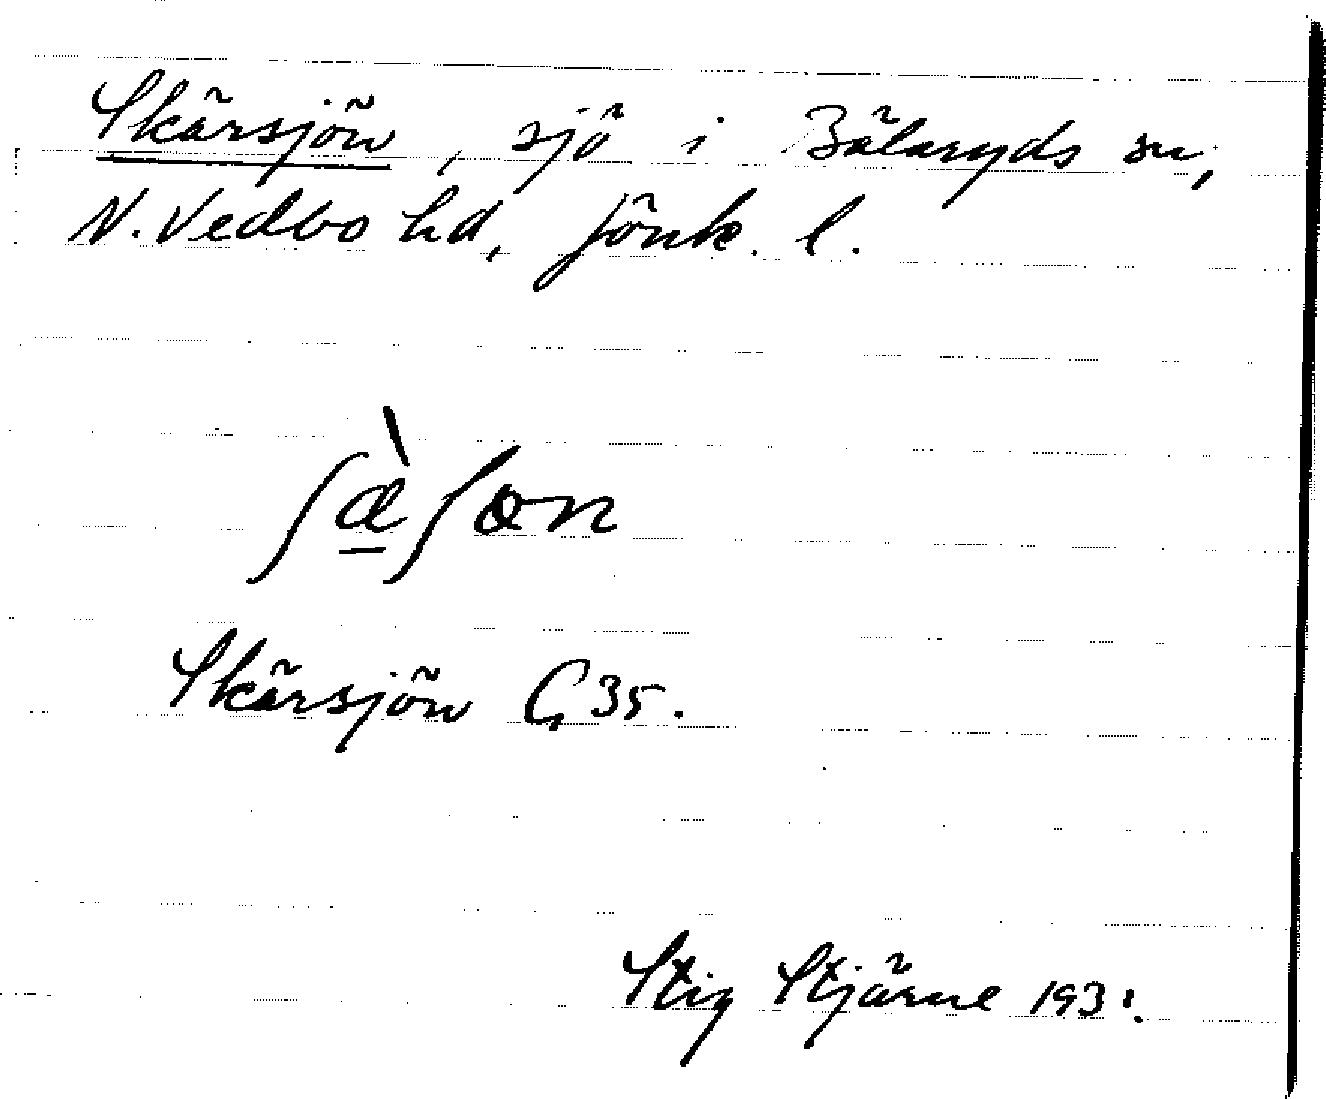 Skärsjön, sjö i Bälaryds sn,
N. Vedbo hd, Jönk. l.
ʃæ̠̀ʃøn
Skärsjön G 35.
Stig Stjärne 1931.